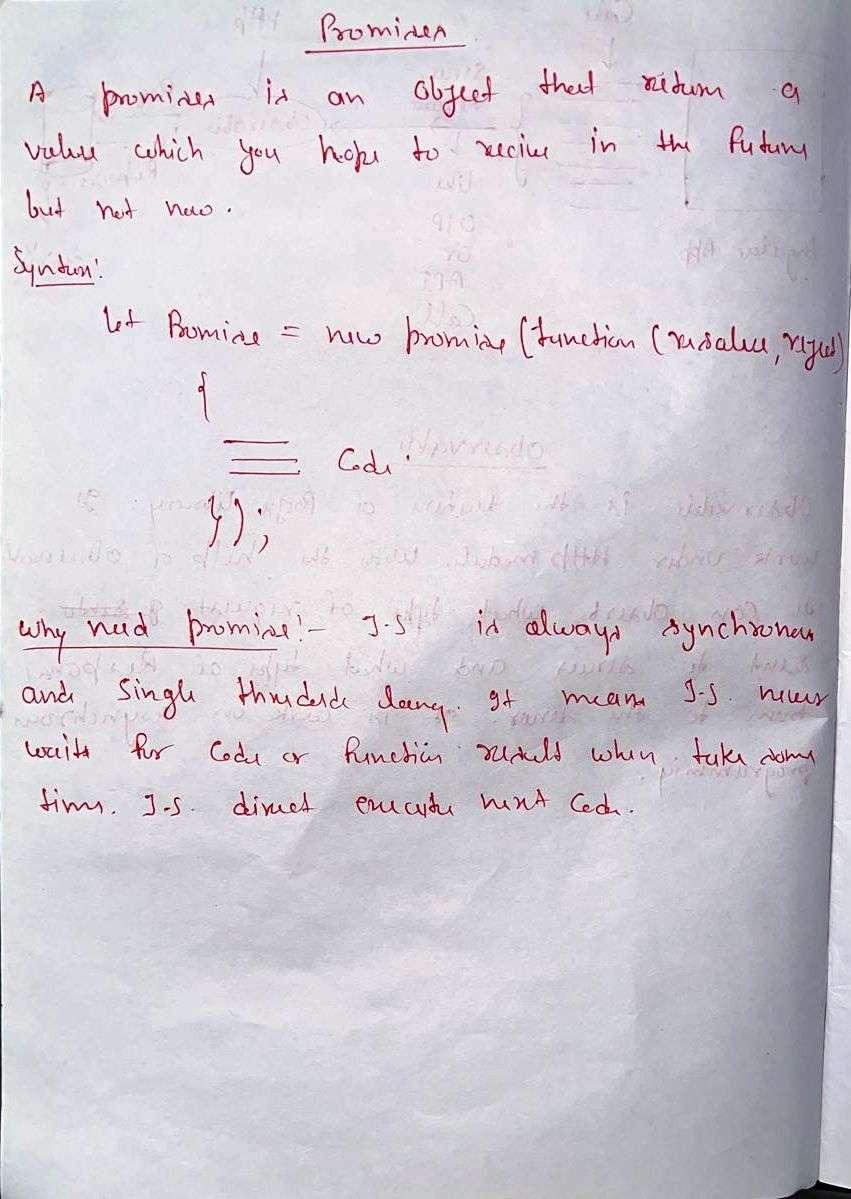 Promises
A promises is an object that return a
value which you hope to recive in the future
but not now.
Syntax:
let Promise = new promise (function (resolve, reject)
{
Code.
});
why need promise:- J.S is always synchronous
and Single threded lang. It means J.S. never
waits for Code or function result when take some
time. J.S. direct execute next Code.